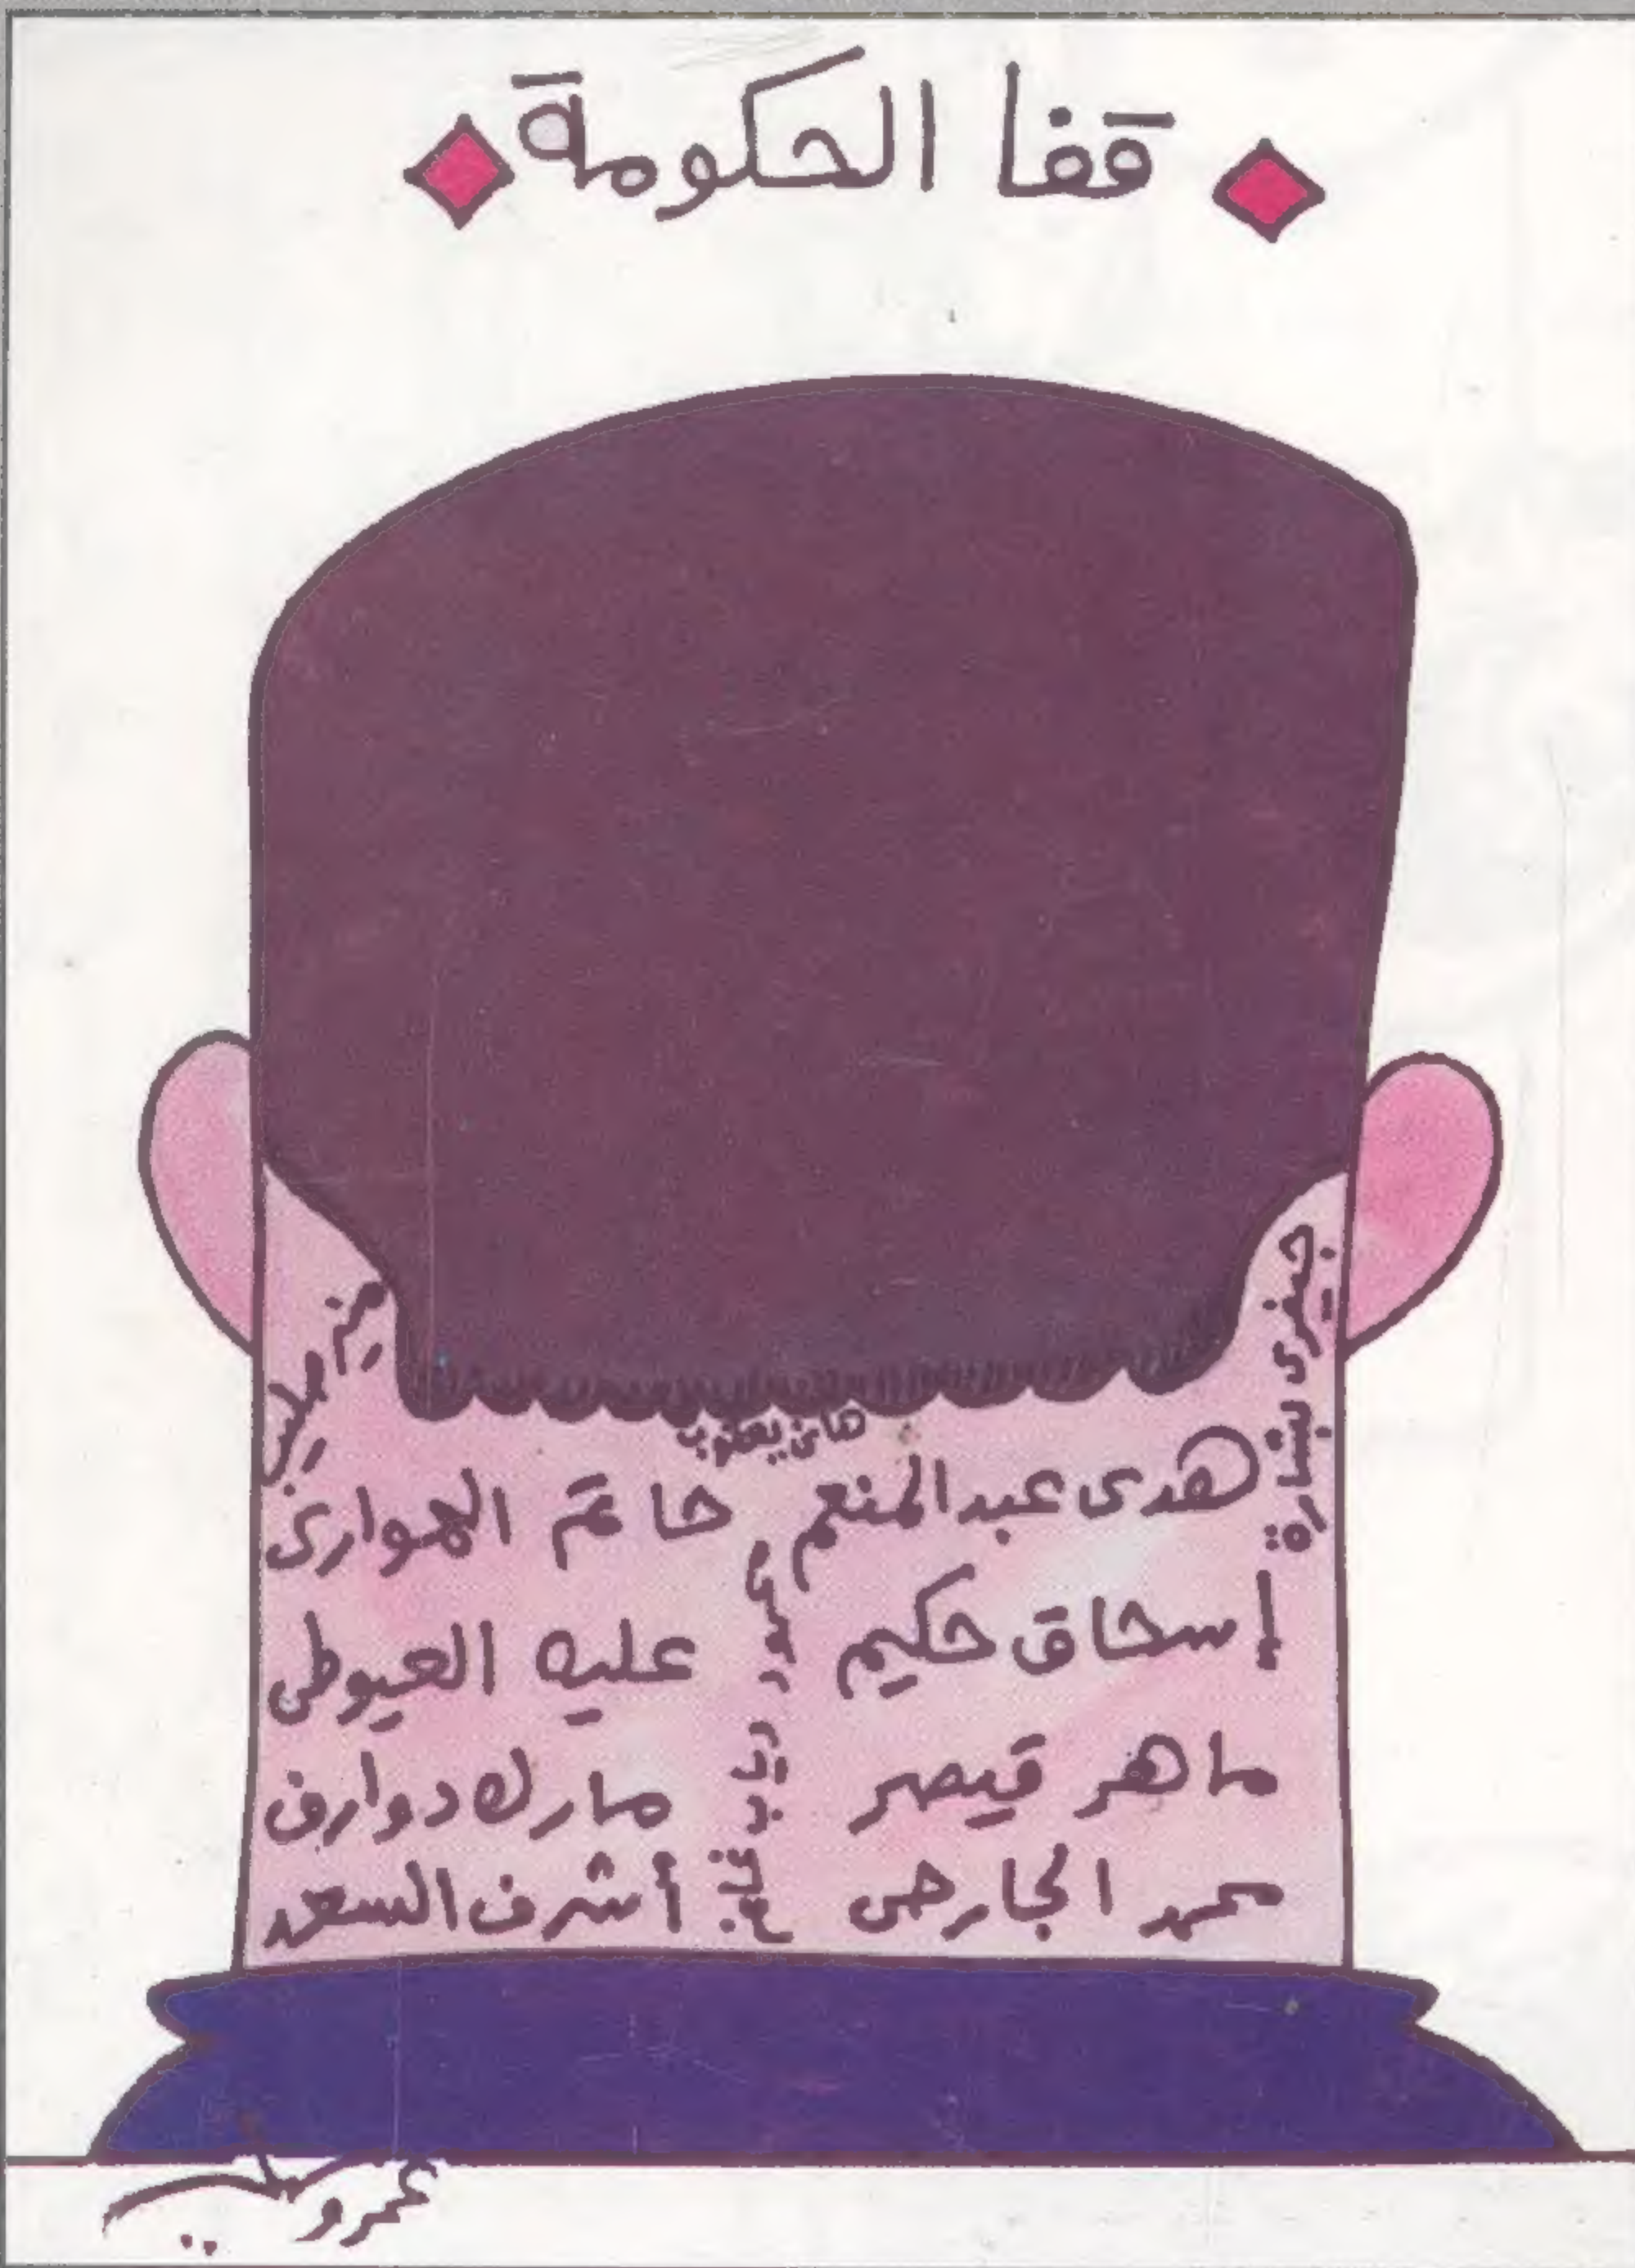 قفا الحكومة
جيفرى بشارة
هانى يعقوب
هدى عبد المنعم
حاتم الهوارى
إسحاق حكيم
عليه العيوطى
ماهر قيصر
مارك دوارف
محمد الجارحى
أشرف السعد
عمرو